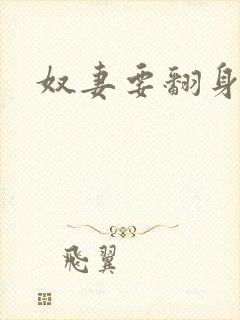 奴妻要翻身
飛翼